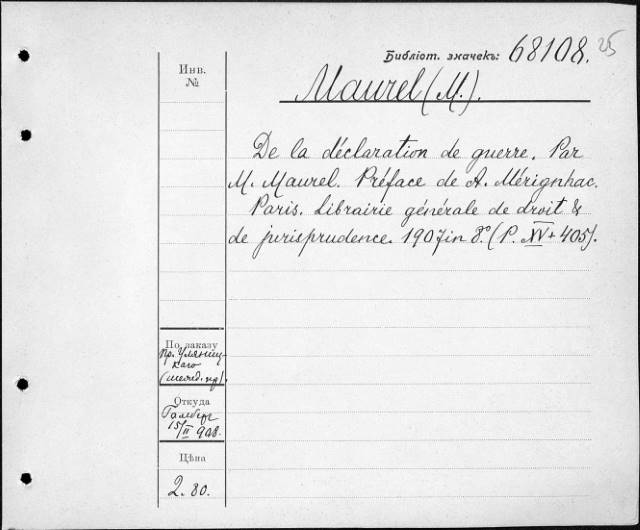 Библіот. значекъ: 68108. 25
Инв.
№
Maurel (M.).
De la déclaration de guerre. Par
M. Maurel. Préface de A. Mérignhac.
Paris. Librairie générale de droit &
de jurisprudence. 1907 in 8.° (P. XV + 405).
По заказу
Пр. Уляниц-
каго
Откуда
15/II 908.
Цѣна
2. 80.